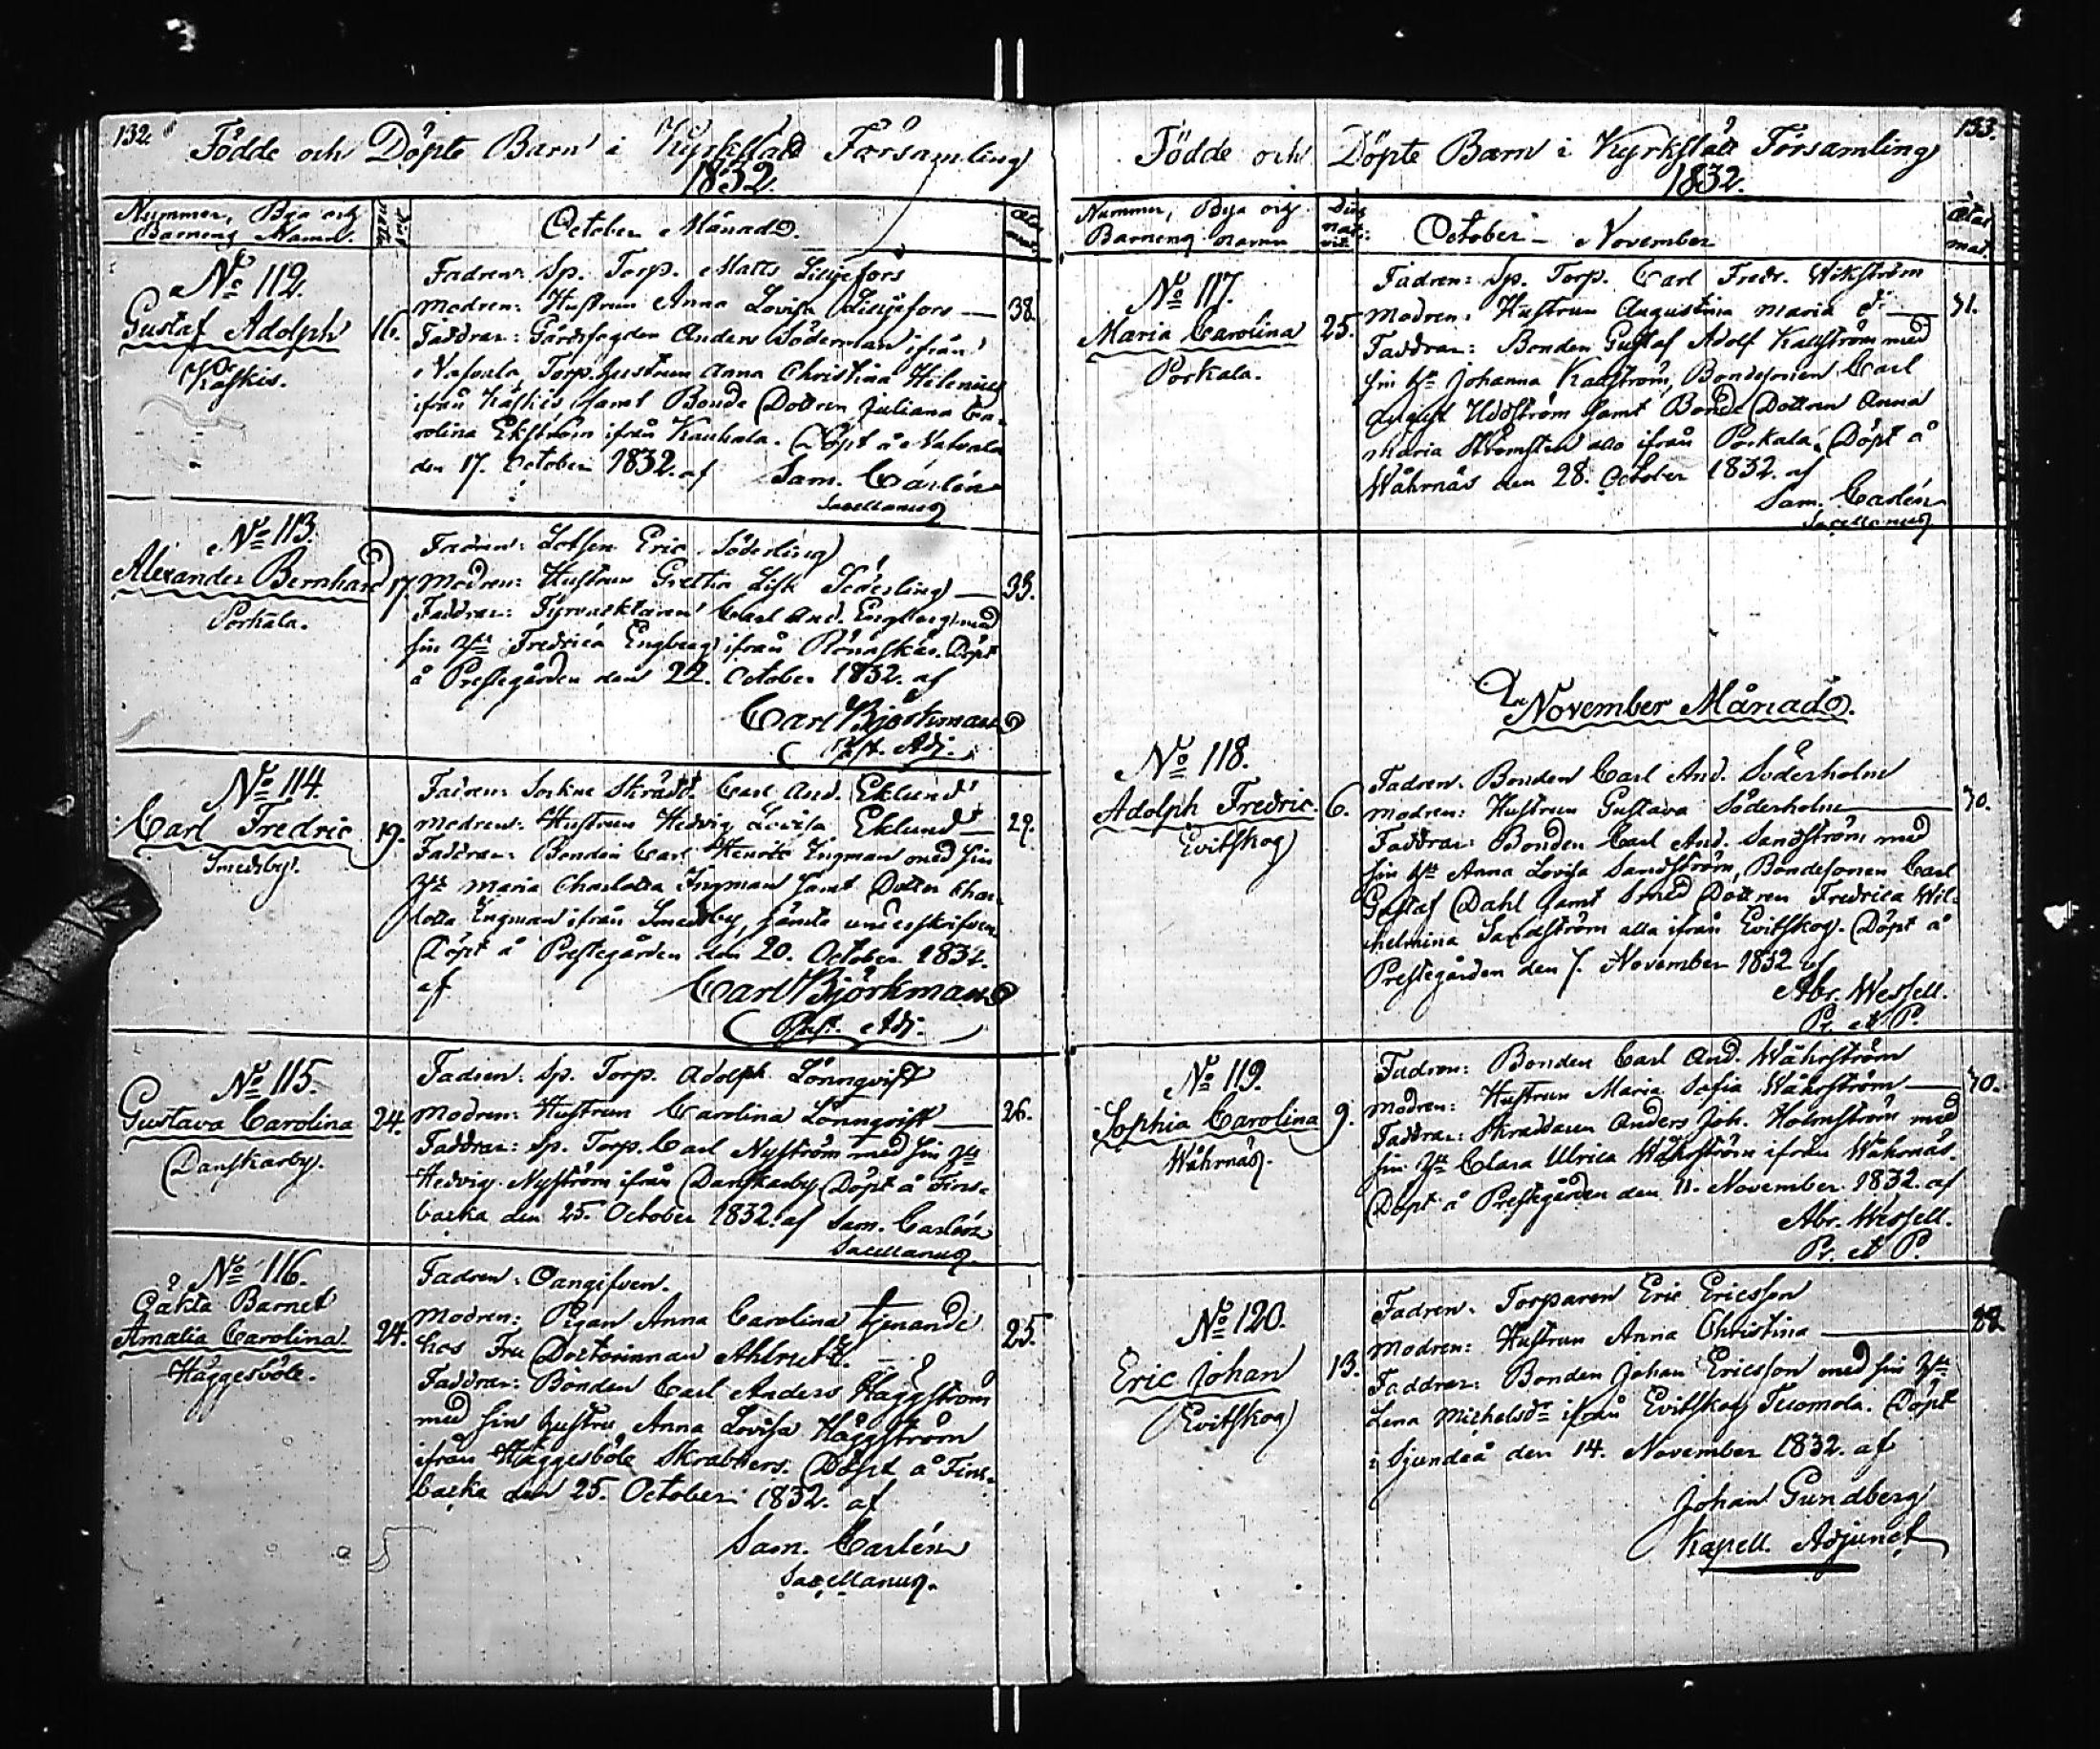 132.
Födde och Döpte Barn i Kyrkslätt Församling
1832.
Nummer, Bya och
Barnens Namn.
October Månad.
No 112.
Gustaf Adolph
Käskis.
16.
Fadren: Sp. Torp. Matts Liljefors
Modren: Hustrun Anna Lovisa Liljefors — 38.
Faddrar: Gårdsfogden Anders Söderman ifrån
Torp. hustrun Anna Christina Helenius
ifrån Käskis samt Bonde Dottren Juliana Ca-
rolina Ekström ifrån Kauhala. Döpt å
den 17. October 1832. af Sam. Carlén
Sacellanus
No 113.
Alexander Bernhard
Porkala.
17.
Fadren: Lotsen Eric Söderling
Modren: Hustrun Gretha Lisk Söderling — 33.
Faddrar: Fyrvacktaren Carl And. Engberg med
sin Hu Fredrica Engberg ifrån Rönnskär. Döpt
å Prestegården den 22. October 1832. af
Carl Björkman
Past. Adj.
No 114.
Carl Fredric
Smedsby.
19.
Fadren: Sockne Skrädd. Carl And. Eklund
Modren: Hustrun Hedvig Lovisa Eklund — 29.
Faddrar: Bonden Carl Henric Ingman med sin
Hu Maria Charlotta Ingman samt Dotter Char-
lotta Ingman ifrån Smedsby, jämte underskrifven
Döpt å Prestegården den 20. October 1832.
af Carl Björkman
Past. Adj.
No 115.
Gustava Carolina
Danskarby.
24.
Fadren: Sp. Torp. Adolph Lönnqvist
Modren: Hustrun Carolina Lönnqvist — 26.
Faddrar: Sp. Torp. Carl Nyström med sin Hu
Hedvig Nyström ifrån Danskarby Döpt å Fins-
backa den 25. October 1832. af Sam. Carlén
Sacellanus
No 116.
Oäkta Barnet
Amalia Carolina
Häggesböle.
24.
Fadren: Oangifven.
Modren: Pigan Anna Carolina tjenande 25.
hos Fru Doctorinnan
Faddrar: Bonden Carl Anders Häggström
med sin hustru Anna Lovisa Häggström
ifrån Häggesböle Skrabbers. Döpt å Fins-
backa den 25. October 1832. af
Sam. Carlén
Sacellanus.
133.
Födde och Döpte Barn i Kyrkslätt Församling
1832.
Nummer, Bya och
Barnens namn
Dies
nat:
vit:
October — November
Ætas
mat.
No 117.
Maria Carolina
Porkala.
25.
Fadren: Sp. Torp. Carl Fredr. Wikström
Modren: Hustrun Augustina Maria do — 31.
Faddrar: Bonden Gustaf Adolf Kallström med
sin Hu Johanna Kallström, Bondesonen Carl
August Uddström samt Bonde Dottren Anna
Maria Strömsten alla ifrån Porkala. Döpt å
Wåhrnäs den 28. October 1832. af
Sam. Carlén
Sacellanus
November Månad.
No 118.
Adolph Fredric
Evitskog
6.
Fadren: Bonden Carl And. Söderholm
Modren: Hustrun Gustava Söderholm — 30.
Faddrar: Bonden Carl And. Sandström med
sin Hu Anna Lovisa Sandström, Bondesonen Carl
Gustaf Dahl samt Smed Dottren Fredrica Wil-
helmina Sandström alla ifrån Evitskog. Döpt å
Prestegården den 7. November 1832 af
Abr. Wessell.
Pr. et P.
No 119.
Sophia Carolina
Wåhrnäs.
9.
Fadren: Bonden Carl And. Wåhrström
Modren: Hustrun Maria Sofia Wåhrström — 30.
Faddrar: Skräddaren Anders Joh. Holmström med
sin Hu Clara Ulrica Wåhrström ifrån Wåhrnäs.
Döpt å Prestegården den 11. November 1832. af
Abr. Wessell.
Pr. et P.
No 120.
Eric Johan
Evitskog
13.
Fadren: Torparen Eric Ericsson
Modren: Hustrun Anna Christina —
Faddrar: Bonden Johan Ericsson med sin Hu
Lena Michelsdr ifrån Evitskog Tuomola. Döpt
i Sjundeå den 14. November 1832. af
Johan Gundberg
Kapell. Adjunct